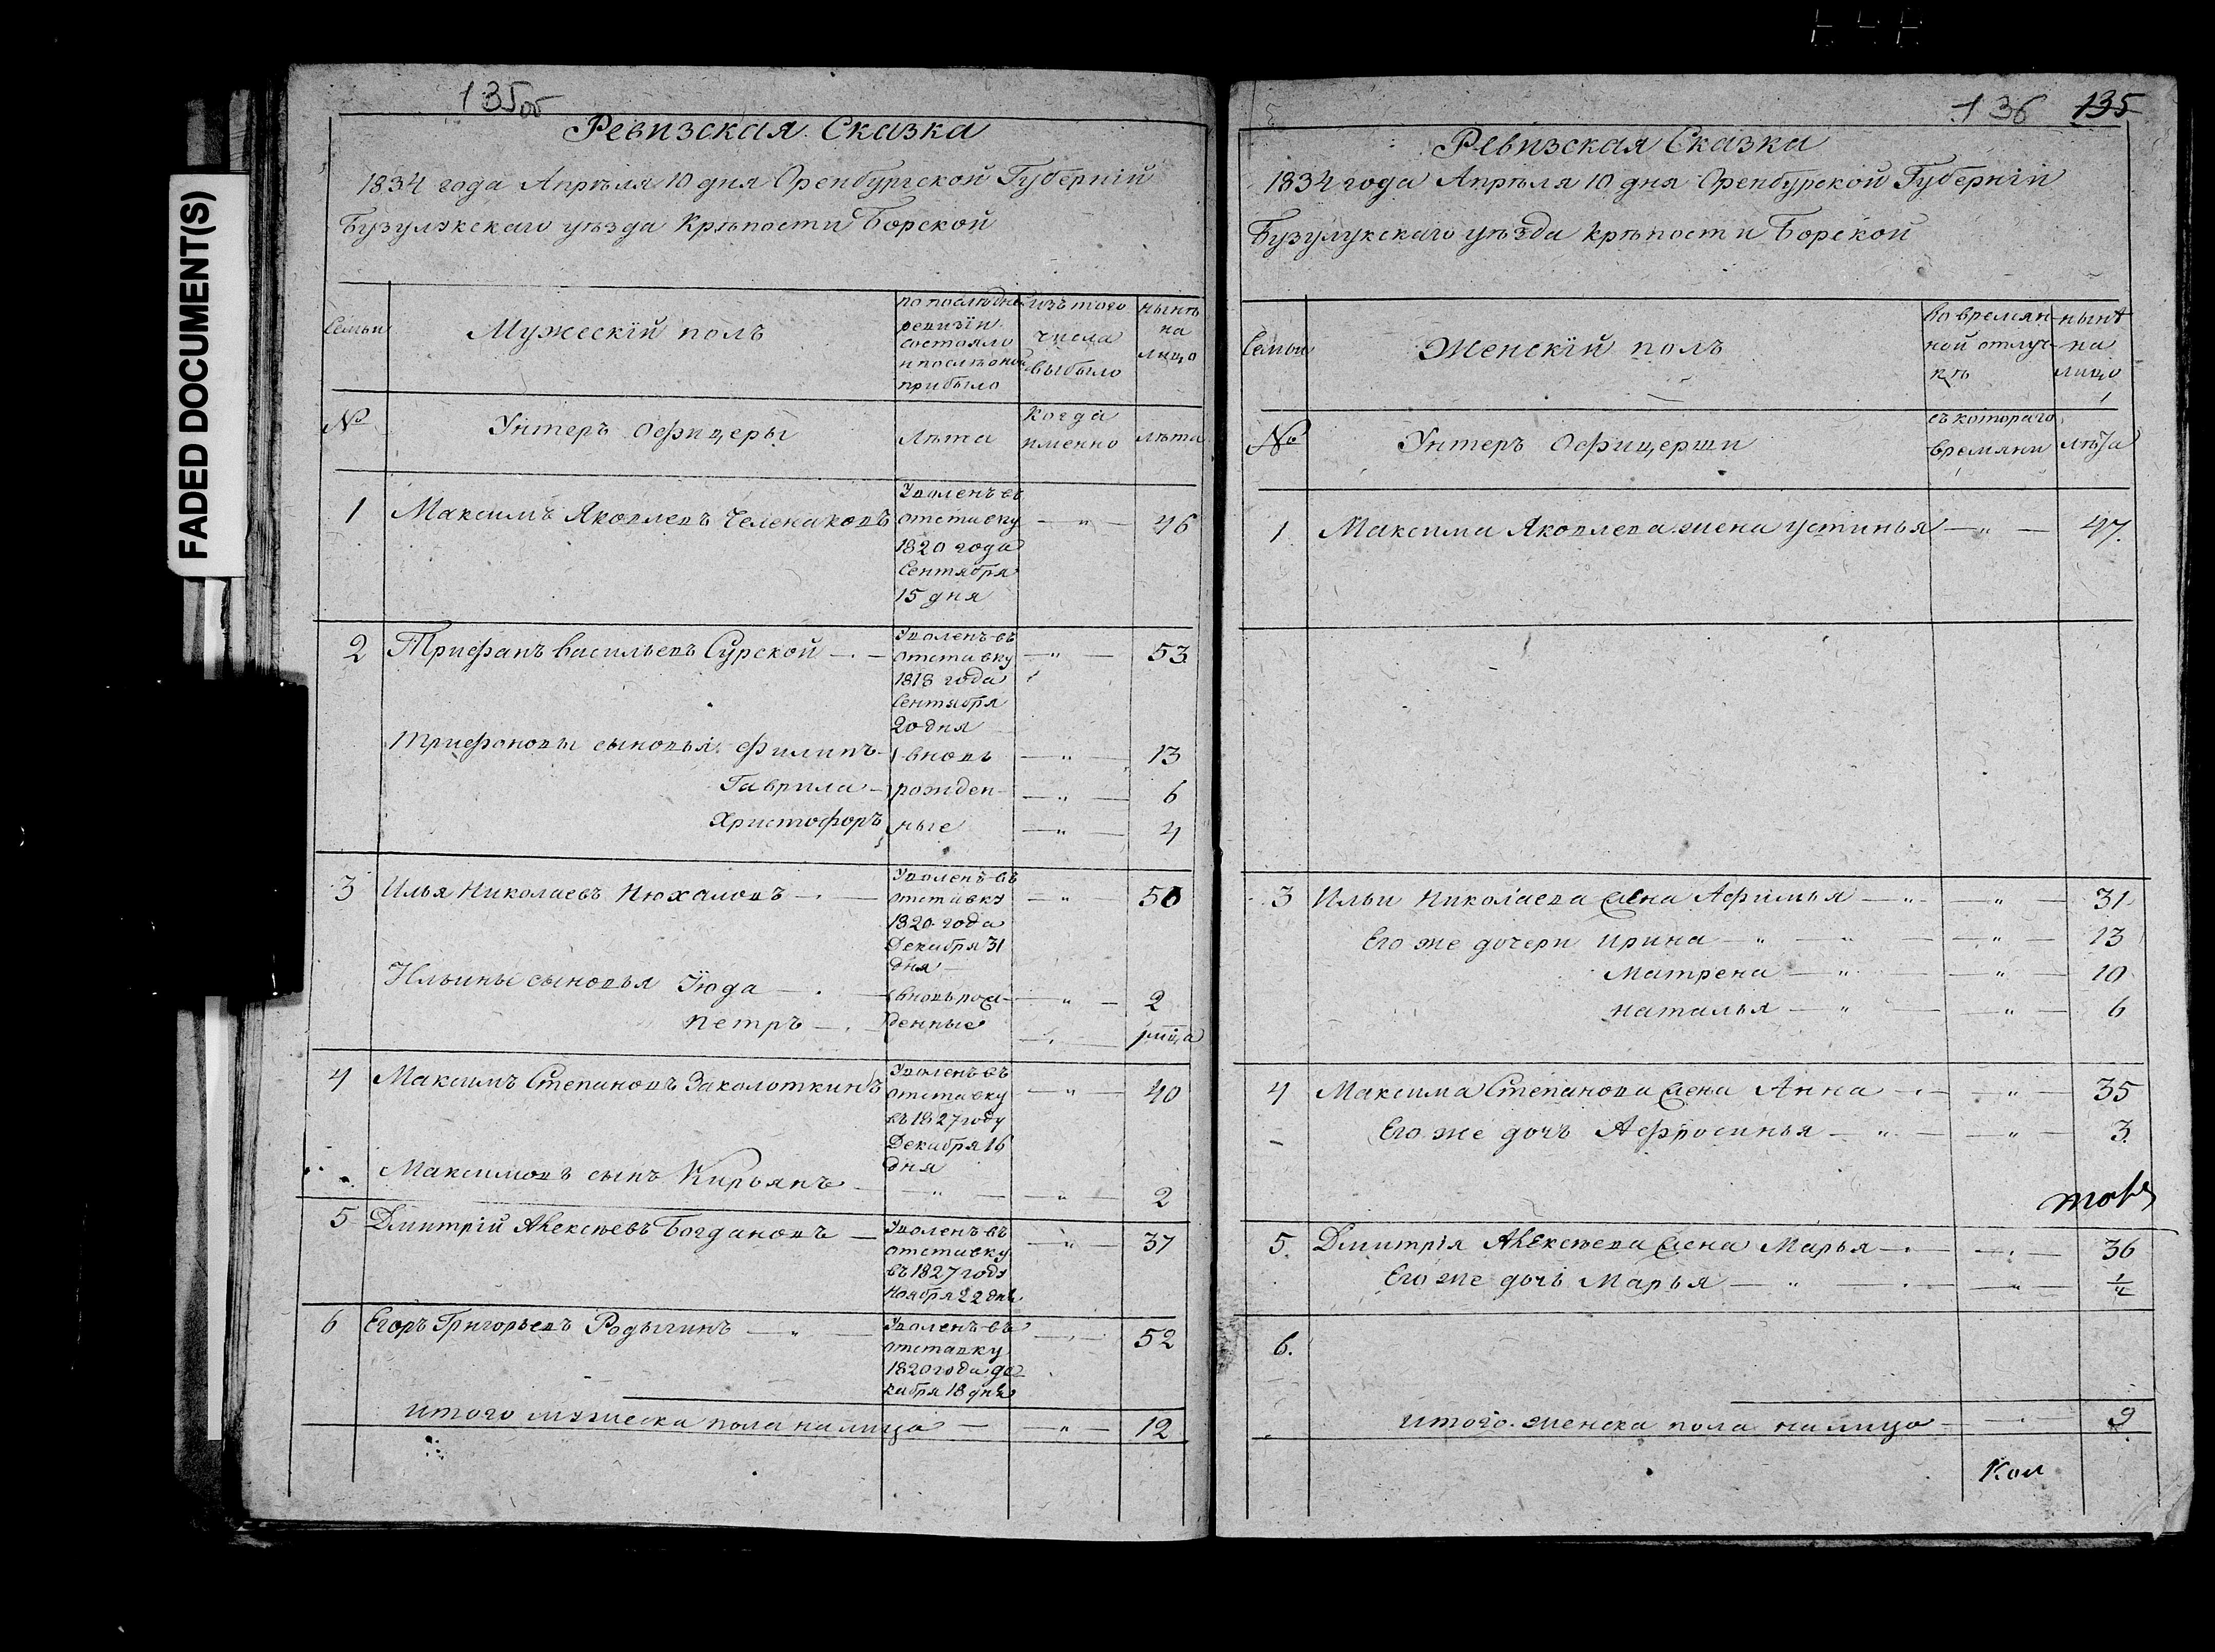 FADED DOCUMENT(S)
135об
Ревизская Сказка
1834 года Апрѣля 10 дня Оренбургской Губерній
Бузулукскаго уѣзда Крѣпости Борской
Семьи
Мужескій полъ
по последней
ревизіи
состояло
и после оной
прибыло
изъ того
числа
выбыло
нынѣ
на
лицо
№
Унтеръ Офицеры
Лѣта
когда
именно
лѣта
1 Максимъ Яковлевъ Челенаковъ
Уволенъ въ
отставку
1820 года
Сентября
15 дня
— „ — 46
2 Трифанъ Васильевъ Сурской
Уволенъ въ
отставку
1818 года
Сентября
20 дня
— „ — 53
Трифоновы сыновья Филипъ вновь — „ — 13
Гаврила рожден — „ — 6
Христофоръ ные — „ — 4
3 Илья Николаевъ Нюхаловъ
Уволенъ въ
отставку
1820 года
Декабря 31
дня
— „ — 50
Ильины сыновья Июда вновь рож — „ — 2
Петръ денные 1 мц̃а
4 Максимъ Степановъ Заколоткинъ
Уволенъ въ
отставку
въ 1827 году
Декабря 16
дня
— „ — 40
Максимовъ сынъ Кирьянъ — „ — „ — 2
5 Дмитрій Алексѣевъ Богдановъ
Уволенъ въ
отставку
въ 1827 году
Ноября 22 дня
— „ — 37
6 Егоръ Григорьевъ Родыгинъ — „ —
Уволенъ въ
отставку
1820 года де
кабря 18 дня
52
итого мужеска пола на лицо — „ — 12
136 135
Ревизская Сказка
1834 года Апрѣля 10 дня Оренбурской Губерніи
Бузулукскаго уѣзда крѣпости Борской
Семьи
Женскій полъ
во времян
ной отлуч
кѣ
нынѣ
на
лицо
№
Унтеръ Офицерши
съ котораго
времяни
лѣта
1. Максима Яковлева жена Устинья — „ — 47.
3 Ильи Николаева жена Афимья — „ — „ — 31
Его же дочери Ирина — „ — „ — 13
Матрена — „ — „ — 10
Наталья — „ — „ — 6
4 Максима Степанова жена Анна — „ — 35
Его же дочь Афросинья — „ — „ — 3
5. Дмитрія Алексѣева жена Марья — 36
Его же дочь Марья — „ — „ — ½
6.
итого женска пола на лицо — 9
Кол